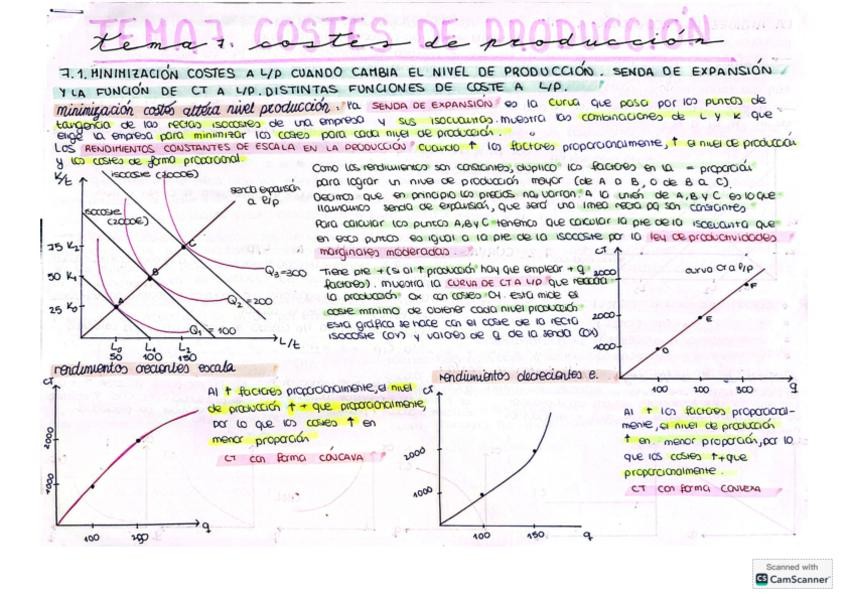 TEMA 7. COSTES DE PRODUCCIÓN
tema 7. costes de producción
7.1. MINIMIZACIÓN COSTES A L/P CUANDO CAMBIA EL NIVEL DE PRODUCCIÓN. SENDA DE EXPANSIÓN
Y LA FUNCIÓN DE CT A L/P. DISTINTAS FUNCIONES DE COSTE A L/P.
minimización costes altera nivel producción: la SENDA DE EXPANSIÓN es la curva que pasa por los puntos de
tangencia de las rectas isocostes de una empresa y sus isocuantas. muestra las combinaciones de L y K que
elige la empresa para minimizar los costes para cada nivel de producción.
Los RENDIMIENTOS CONSTANTES DE ESCALA EN LA PRODUCCIÓN cuando ↑ los factores proporcionalmente, ↑ el nivel de producción
y los costes de forma proporcional.
K/t
isocoste (3000€)
isocoste
(2000€)
senda expansión
a l/p
75 K2
50 K1
25 K0
A
B
C
Q3=300
Q2=200
Q1=100
L0 L1 L2
50 100 150
L/t
Como los rendimientos son constantes, duplico los factores en la = proporción
para lograr un nivel de producción mayor (de A a B, o de B a C).
Decimos que en principio los precios no varían. A la unión de A, B y C es lo que
llamamos senda de expansión, que será una línea recta pq son constantes
Para calcular los puntos A, B y C tenemos que calcular la pte de la isocuanta que
en esos puntos es igual a la pte de la isocoste por la ley de productividades
marginales moderadas.
Tiene pte + (si al ↑ producción hay que emplear + q
factores). muestra la CURVA DE CT A L/P que relaciona
la producción Ox con costes Oy. Esta mide el
coste mínimo de obtener cada nivel producción
esta gráfica se hace con el coste de la recta
isocoste (OY) y valores de Q de la senda (OX)
CT
curva CT a l/p
3000
2000
1000
D
E
F
100 200 300 q
rendimientos crecientes escala
CT
2000
1000
100 250 q
Al ↑ factores proporcionalmente, el nivel
de producción ↑ + que proporcionalmente,
por lo que los costes ↑ en
menor proporción
CT con forma CÓNCAVA
rendimientos decrecientes e.
CT
2000
1000
100 150 q
Al ↑ los factores proporcional-
mente, el nivel de producción
↑ en menor proporción, por lo
que los costes ↑ + que
proporcionalmente.
CT con forma CONVEXA
Scanned with
CS CamScanner